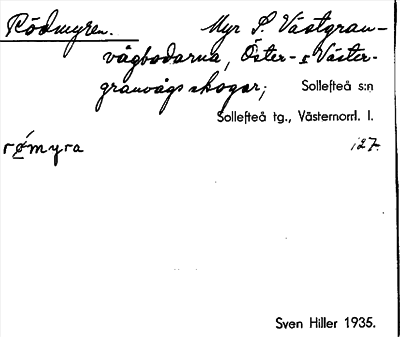 Rödmyren. Myr S. Västgran-
vågbodarna, Öster- o Väster-
granvågs skogar; Sollefteå s:n
Sollefteå tg., Västernorrl. l.
rǿmyra 127.
Sven Hiller 1935.